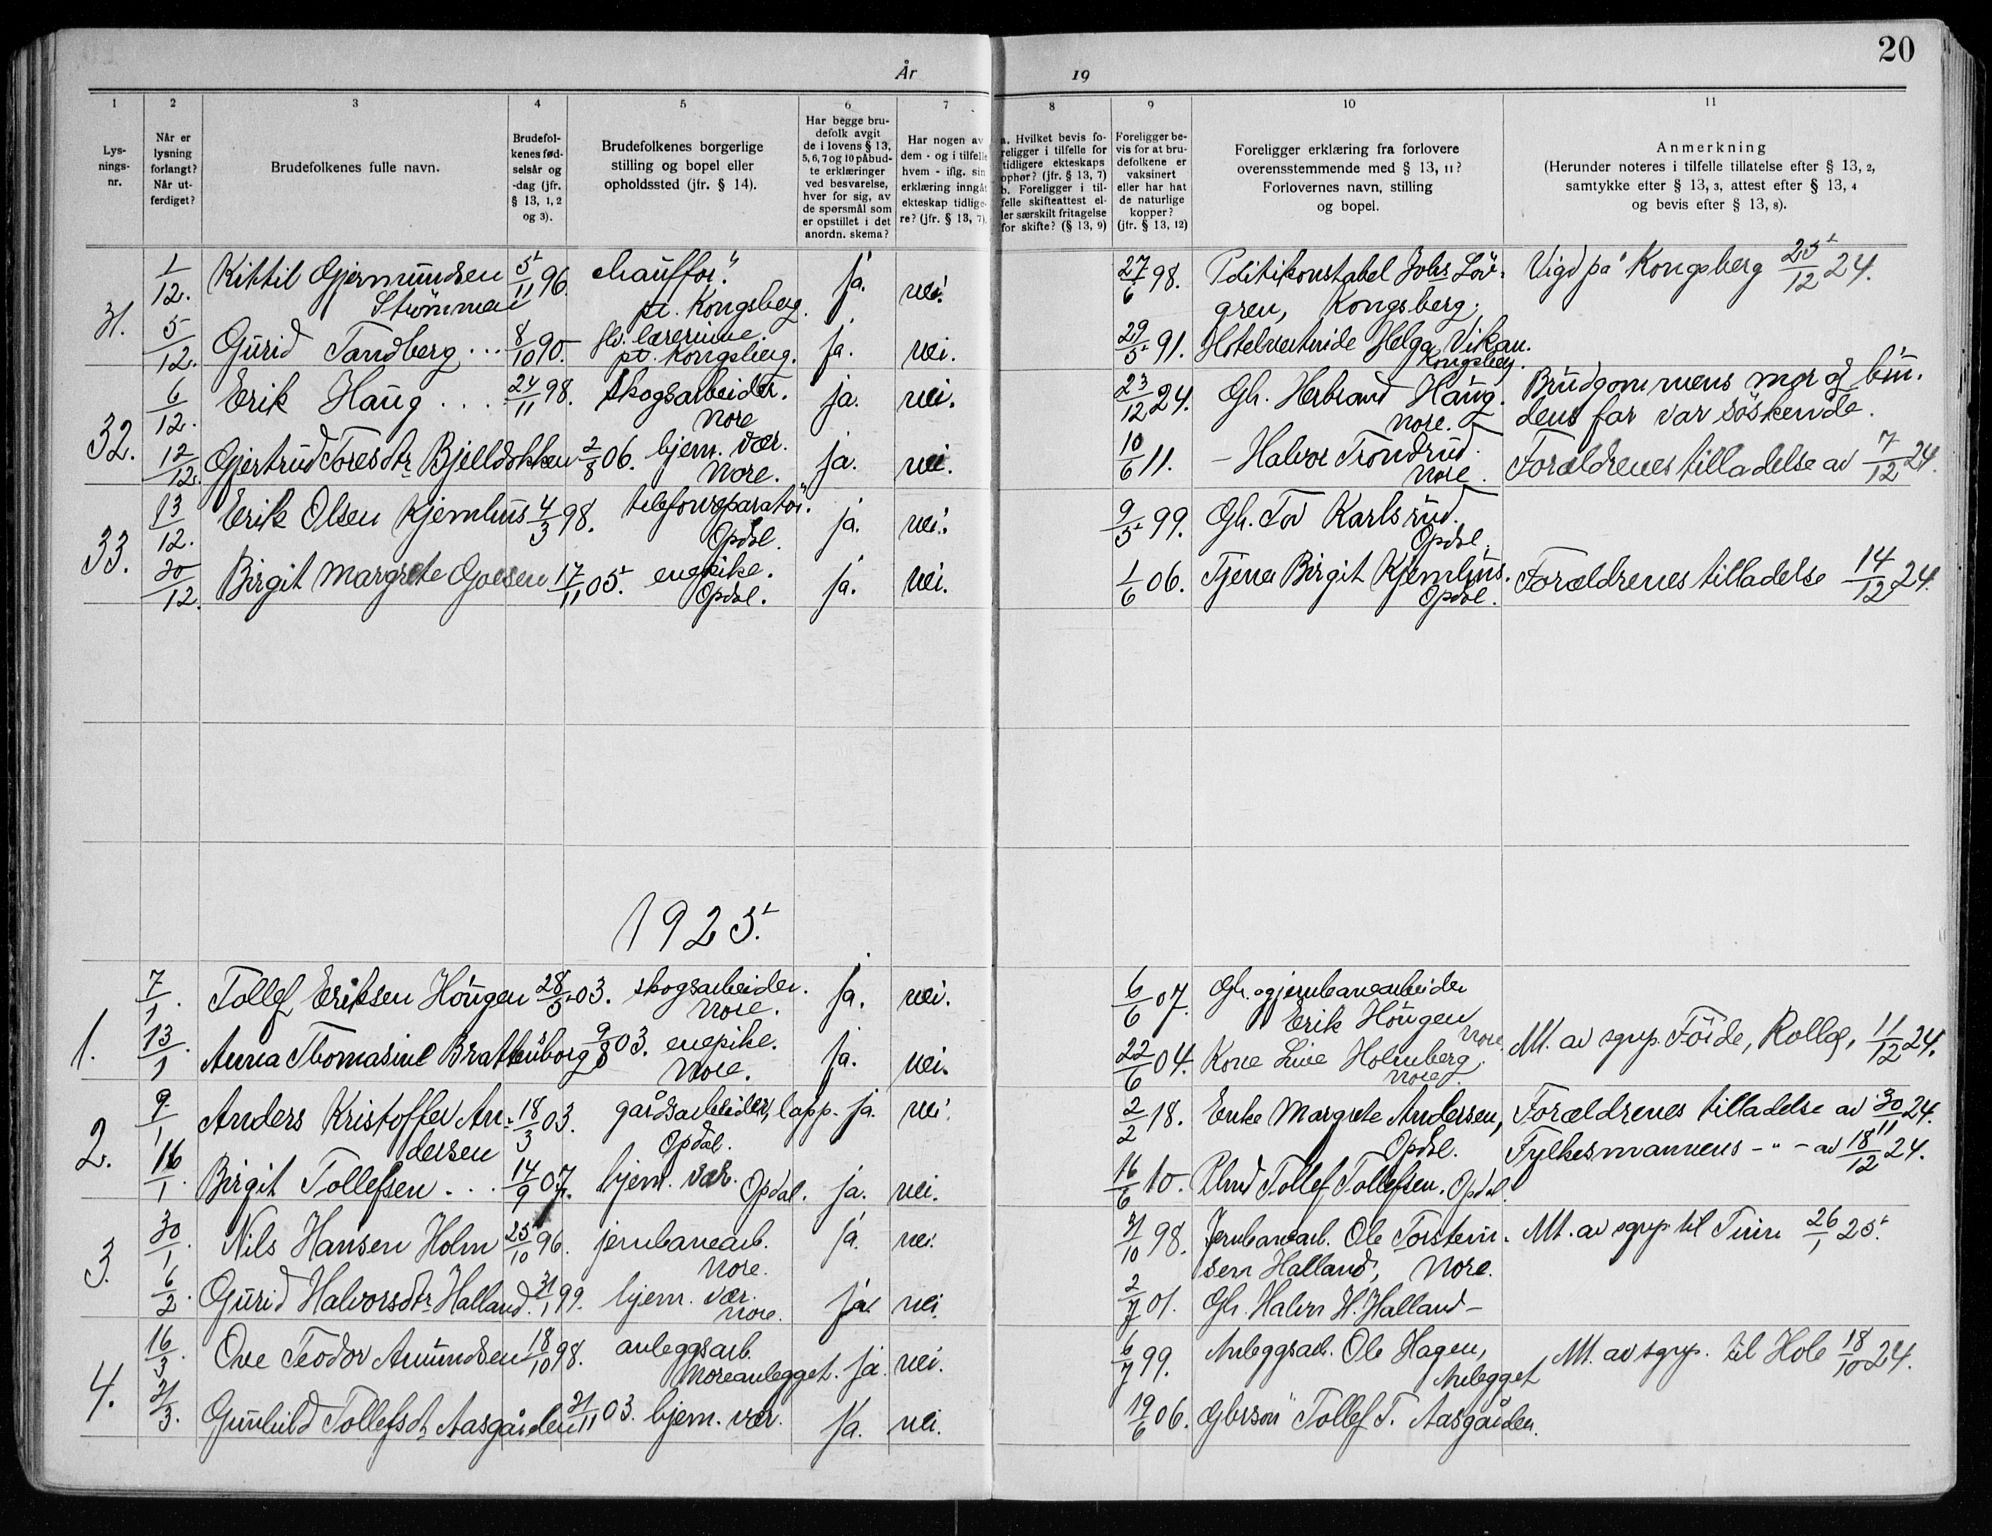 20
År 19
1
Lys-
nings-
nr.
2
Når er
lysning
forlangt?
Når ut-
ferdiget?
3
Brudefolkenes fulle navn.
4
Brudefol-
kenes fød-
selsår og
-dag (jfr.
§ 13, 1, 2
og 3).
5
Brudefolkenes borgerlige
stilling og bopel eller
opholdssted (jfr. § 14).
6
Har begge bru-
defolk avgit
de i lovens § 13,
5, 6, 7 og 10 påbud-
te erklæringer
ved besvarelse,
hver for sig, av
de spørsmål som
er opstillet i det
anordn. skema?
7
Har nogen av
dem - og i tilfelle
hvem - iflg. sin
erklæring inngåt
ekteskap tidlige-
re? (jfr. § 13, 7).
8
a. Hvilket bevis fo-
religger i tilfelle for
tidligere ekteskaps
ophør? (jfr. § 13, 7)
b. Foreligger i til-
felle skifteattest el-
ler særskilt fritagelse
for skifte? (§ 13, 9)
9
Foreligger be-
vis for at bru-
defolkene er
vaksinert
eller har hat
de naturlige
kopper?
(jfr. § 13, 12)
10
Foreligger erklæring fra forlovere
overensstemmende med § 13, 11?
Forlovernes navn, stilling
og bopel.
11
Anmerkning
(Herunder noteres i tilfelle tillatelse efter § 13, 2,
samtykke efter § 13, 3, attest efter § 13, 4
og bevis efter § 13, 8).
31.
1/12. Kittil Gjermundsen 5/11 96. chauffør. ja. nei. 27/6 98. Politikonstabel Johs Löv- Vigd på Kongsberg 25/12 24.
Strømmen pt. Kongsberg. gren, Kongsberg.
5/12. Gurid Tandberg . . . 8/10 90. hv. lærerinne. ja. nei. 29/5 91. Hotelvertinde Helga Vikan.
pt. Kongsberg. Kongsberg.
32.
6/12. Erik Haug . . . 24/11 98. skogsarbeider. ja. nei. 23/12 24. Gb. Herbrand Haug. Brudgommens mor og bru-
Nore Nore. dens far var söskende.
12/12. Gjertrud Toresdtr Bjelldokken 2/8 06. hjem. vær. ja. nei. 10/6 11. - Halvor Trondrud. Forældrenes tilladelse av 7/12 24.
Nore. Nore.
33.
13/12. Erik Olsen Kjemhus 4/3 98. telefonreparatör. ja. nei. 9/5 99. Gb. Tov Karlsrud.
Opdal. Opdal.
20/12. Birgit Margrete Goesen 17/11 05. enepike. ja. nei. 1/6 06. Tjener Birgit Kjemhus. Forældrenes tilladelse 14/12 24.
Opdal. Opdal.
1925.
1.
7/1. Tollef Eriksen Höugen 28/5 03. skogsarbeider. ja. nei. 6/6 07. Gb. og jernbanearbeider
Nore. Erik Höugen
Nore.
13/1 Anna Thomasine Brattensborg 9/8 03. enepike. ja. nei. 22/6 04. Kone Live Holmberg. Mt. av sgrp. Förde, Rollag, 11/12 24.
Nore. Nore.
2.
9/1 Anders Kristoffer An- 18/3 03. gårdsarbeider, lapp. ja. nei. 2/2 18. Enke Margrete Andersen, Forældrenes tilladelse av 30/11 24.
dersen Opdal. Opdal. Fylkesmannens -"- av 18/12 24.
16/1. Birgit Tollefsen . . . 14/9 07. hjem. vær. Opdal. ja. nei. 16/6 10. Tollef Tollefsen. Opdal.
3.
30/1. Nils Hansen Holm 25/10 96. jernbanearb. ja. nei. 3/10 98. Jernbanearb. Ole Torstein- Mt. av sgrp til Tuin 26/1 25.
Nore. sen Halland, Nore.
6/2. Gurid Halvorsdtr Halland. 31/1 99. hjem. vær. ja nei 2/7 01. Gb. Halvor H. Halland -
Nore.
4.
16/3. Ove Teodor Amundsen 18/10 98. anleggsarb. 6/7 99. Anleggsarb. Ole Hagen, Mt. av sgrp. til Hole 18/10 24.
Noreanlegget. ja. nei. Anlegget
21/3. Gunhild Tollefsdtr Aasgården 21/11 03. hjem. vær. ja. nei. 19/6 06. Gbrsön Tollef T. Aasgården.